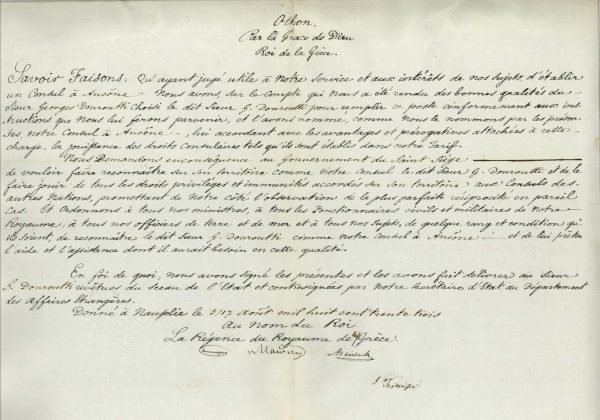 Othon.
Par la Grace de Dieu
Roi de la Grèce.
Savoir Faisons. Qu'ayant jugé utile à Notre Service et aux intérêts de nos sujets, d'établir
un Consul à Ancône – Nous avons, sur le Compte qui Nous a été rendu des bonnes qualités du
Sieur Georges Douroutti Choisi le dit Sieur G. Douroutti pour remplir ce poste conformement aux ins-
tructions que Nous lui ferons parvenir, et l'avons nommé, comme Nous le nommons par les présen-
tes, notre Consul à Ancône – , lui accordant avec les avantages et prérogatives attachées à cette
charge, la jouissance des droits Consulaires tels qu'ils sont établis dans notre Tarif.
Nous Demandons enconséquence au Gouvernement du Saint Siége
de vouloir faire reconnaître sur son territoire comme notre Consul le dit Sieur G. Douroutti et de le
faire jouir de tous les droits privileges et immunités accordés sur son territoire aux Consuls des
autres Nations, promettant de Notre Côté l'observation de la plus parfaite réciprocité en pareil
cas. Et Ordonnons à tous nos ministres, à tous les Fonctionnaires civils et militaires de Notre
Royaume, à tous nos officiers de terre et de mer et à tous nos Sujets, de quelque rang et condition qu'
ils soient, de reconnaître le dit Sieur G. Douroutti comme notre Consul à Ancône – et de lui prêter
l'aide et l'assistance dont il aurait besoin en cette qualité.
En foi de quoi, nous avons signé les présentes et les avons fait delivrer au Sieur
G. Douroutti revêtues du sceau de l'Etat et contresignées par notre Secrétaire d'Etat au Département
des Affaires Etrangères.
Donné à Nauplie le 5/17 Août mil huit cent trente trois
Au Nom du Roi
La Régence du Royaume de Grèce
Maurer